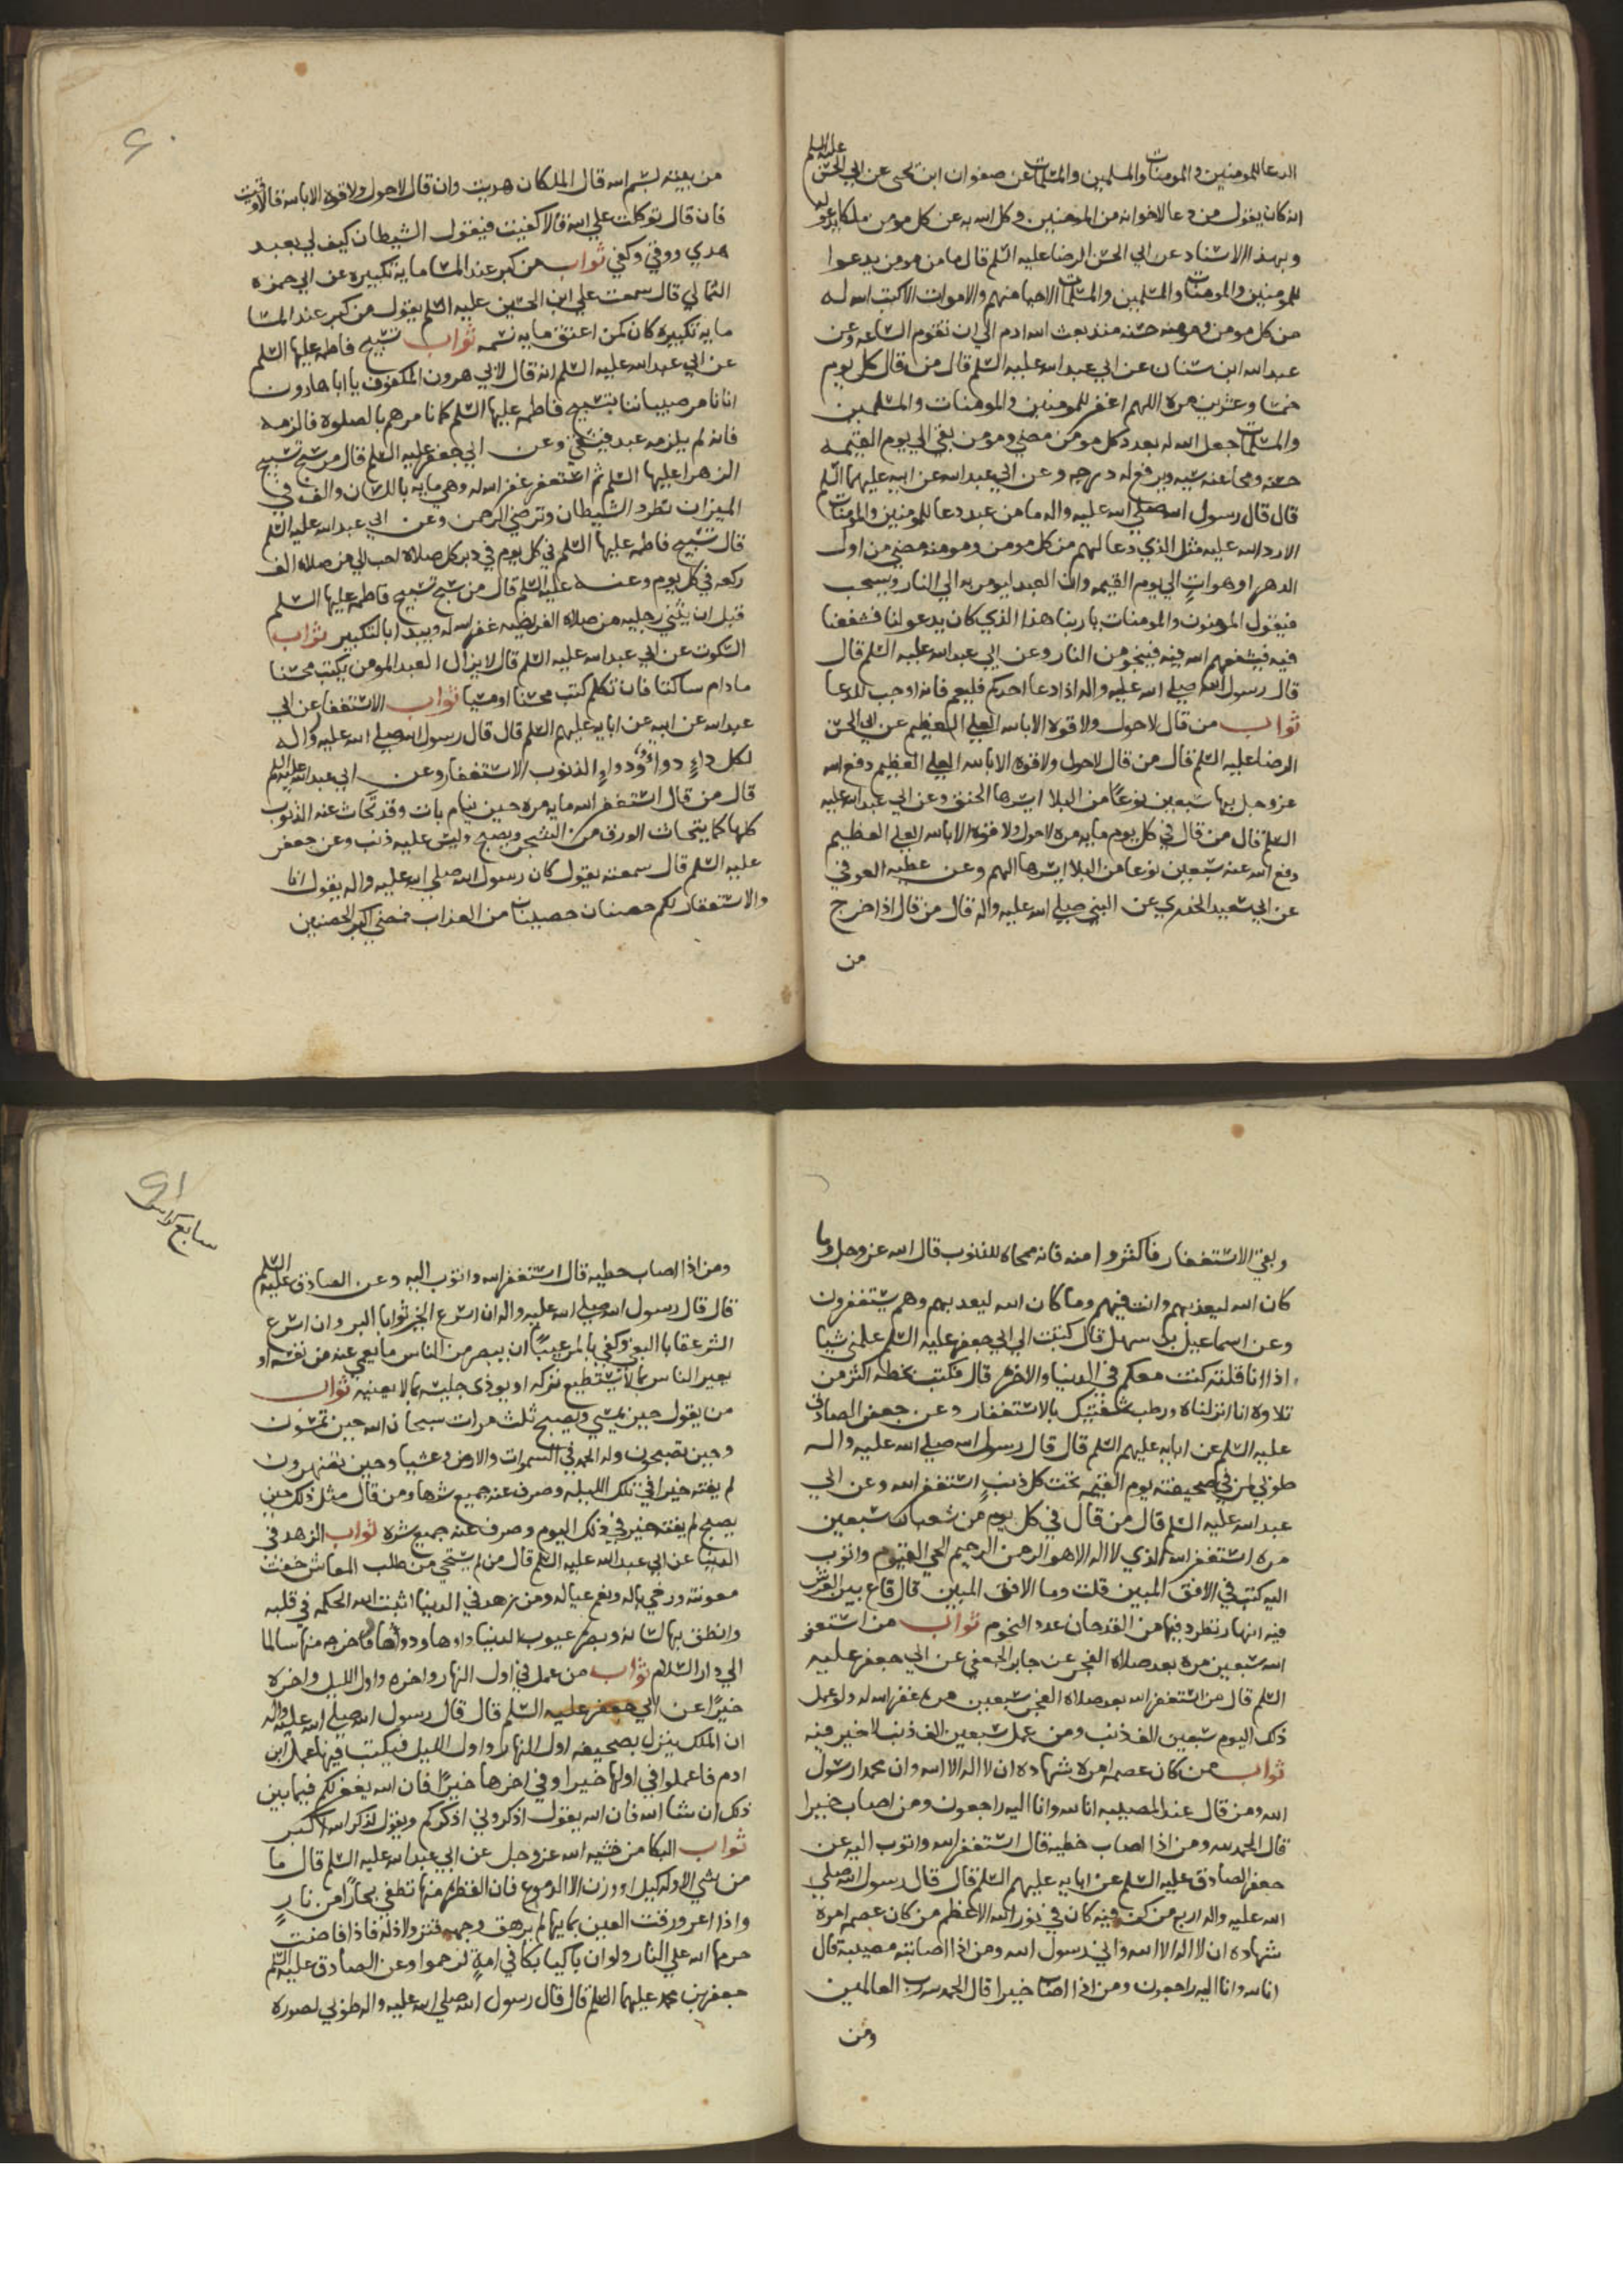 الدعا للمومنين والمومنات والمسلمين والمسلمات عن صفوان ابن يحيى عن ابي الحسن عليه السلم
انه كان يقول من دعا لاخوانه من المومنين وكل الله به عن كل مومن ملكا يدعو له
وبهذا الاسناد عن ابي الحسن الرضا عليه السلم قال ما من مومن يدعوا
للمومنين والمومنات والمسلمين والمسلمات الاحيا منهم والاموات الا كتب الله له
من كل مومن ومومنه حسنه منذ بعث الله ادم الي ان تقوم الساعه وعن
عبد الله ابن سنان عن ابي عبد الله عليه السلم قال من قال كل يوم
خمسا وعشرين مره اللهم اغفر للمومنين والمومنات والمسلمين
والمسلمات جعل الله له بعدد كل مومن مضي ومومن بقي الي يوم القيمه
حسنه ومحا عنه سيه ورفع له درجه وعن ابي عبد الله عن ابيه عليهما السلم
قال قال رسول الله صلي الله عليه واله ما من عبد دعا للمومنين والمومنات
الا رد الله عليه مثل الذي دعا لهم من كل مومن ومومنه مضي من اول
الدهر او هو اتٍ الي يوم القيمه وان العبد ليومر به الي النار ويسحب
فيقول المومنون والمومنات يا ربنا هذا الذي كان يدعو لنا فشفعنا
فيه فيشفعهم الله فيه فينجو من النار وعن ابي عبد الله عليه السلم قال
قال رسول الله صلي الله عليه واله اذا دعا احدكم فليعم فانه اوجب للدعا
ثواب من قال لا حول ولا قوه الا بالله العلي العظيم عن ابي الحسن
الرضا عليه السلم قال من قال لا حول ولا قوه الا بالله العلي العظيم دفع الله
عز وجل بها سبعين نوعًا من البلا ايسرها الخنق وعن ابي عبد الله عليه
السلم قال من قال في كل يوم مايه مره لا حول ولا قوه الا بالله العلي العظيم
دفع الله عنه سبعين نوعا من البلا ايسرها الهم وعن عطيه العوفي
عن ابي سعيد الخدري عن النبي صلي الله عليه واله قال من قال اذا خرج
من
٦٠
من بيته بسم الله قال الملكان هديت وان قال لا حول ولا قوه الا بالله قالا وقيت
فان قال توكلت علي الله قالا كفيت فيقول الشيطان كيف لي بعبد
هدي ووقي وكفي ثواب من كبر عند المسا مايه تكبيره عن ابي حمزه
الثمالي قال سمعت علي ابن الحسين عليه السلم يقول من كبر عند المسا
مايه تكبيره كان كمن اعتق مايه نسمه ثواب تسبيح فاطمه عليها السلم
عن ابي عبد الله عليه السلم انه قال لابي هرون المكفوف يا ابا هارون
انا نامر صبياننا بتسبيح فاطمه عليها السلم كما نامرهم بالصلوه فالزمه
فانه لم يلزمه عبد فيشقي وعن ابي جعفر عليه السلم قال من سبح تسبيح
الزهرا عليها السلم ثم استغفر غفر الله له وهي مايه باللسان والف في
الميزان تطرد الشيطان وترضي الرحمن وعن ابي عبد الله عليه السلم
قال تسبيح فاطمه عليها السلم في كل يوم في دبر كل صلاه احب الي من صلاه الف
ركعه في كل يوم وعنه عليه السلم قال من سبح تسبيح فاطمه عليها السلم
قبل ان يثني رجليه من صلاه الفريضه غفر الله له ويبدا بالتكبير ثواب
السكوت عن ابي عبد الله عليه السلم قال لا يزال العبد المومن يكتب محسنا
ما دام ساكتا فان تكلم كتب محسنا او مسيا ثواب الاستغفار عن ابي
عبد الله عن ابيه عن ابايه عليهم السلم قال قال رسول الله صلي الله عليه واله
لكل داءٍ دواءٌ ودواءُ الذنوب الاستغفار وعن ابي عبد الله عليه السلم
قال من قال استغفر الله مايه مره حين ينام بات وقد تحاتت عنه الذنوب
كلها كما يتحات الورق من الشجر ويصبح وليس عليه ذنب وعن جعفر
عليه السلم قال سمعته يقول كان رسول الله صلي الله عليه واله يقول انا
والاستغفار لكم حصنان حصينان من العذاب فمضي اكبر الحصنين
وبقي الاستغفار فاكثروا منه فانه ممحاه للذنوب قال الله عز وجل وما
كان الله ليعذبهم وانت فيهم وما كان الله ليعذبهم وهم يستغفرون
وعن اسماعيل بن سهل قال كتبت الي ابي جعفر عليه السلم علمني شيا
اذا انا قلته كنت معكم في الدنيا والاخره قال فكتب بخطه اكثر من
تلاوه انا انزلناه ورطب شفتيك بالاستغفار وعن جعفر الصادق
عليه السلم عن ابايه عليهم السلم قال قال رسول الله صلي الله عليه واله
طوبي لمن في صحيفته يوم القيمه تحت كل ذنبٍ استغفر الله وعن ابي
عبد الله عليه السلم قال من قال في كل يوم من شعبان سبعين
مره استغفر الله الذي لا اله الا هو الرحمن الرحيم الحي القيوم واتوب
اليه كتب في الافق المبين قلت وما الافق المبين قال قاع بين العرش
فيه انهار تطرد فيها من القدحان عدد النجوم ثواب من استغفر
الله سبعين مره بعد صلاه الفجر عن جابر الجعفي عن ابي جعفر عليه
السلم قال من استغفر الله بعد صلاه الفجر سبعين مره غفر الله له ولو عمل
ذلك اليوم سبعين الف ذنب ومن عمل سبعين الف ذنب لا خير فيه
ثواب من كان عصمه امره شهاده ان لا اله الا الله وان محمدا رسول
الله ومن قال عند المصيبه انا لله وانا اليه راجعون ومن اصاب خيرا
قال الحمد لله ومن اذا اصاب خطيه قال استغفر الله واتوب اليه عن
جعفر الصادق عليه السلم عن ابايه عليهم السلم قال قال رسول الله صلي
الله عليه واله اربع من كن فيه كان في نور الله الاعظم من كان عصمه امره
شهاده ان لا اله الا الله واني رسول الله ومن اذا اصابته مصيبه قال
انا لله وانا اليه راجعون ومن اذا اصاب خيرا قال الحمد لله رب العالمين
ومن
٦١
سابع كراس
ومن اذا اصاب خطيه قال استغفر الله واتوب اليه وعن الصادق عليه السلم
قال قال رسول الله صلي الله عليه واله ان اسرع الخير ثوابا البر وان اسرع
الشر عقابا البغي وكفي بالمر عيبًا ان يبصر من الناس ما يعمي عنه من نفسه او
يعير الناس بما لا يستطيع تركه او يوذي جليسه بما لا يعنيه ثواب
من يقول حين يمسي ويصبح ثلث مرات سبحان الله حين تمسون
وحين تصبحون وله الحمد في السموات والارض وعشيا وحين تظهرون
لم يفته خيرا في تلك الليله وصرف عنه جميع شرها ومن قال مثل ذلك حين
يصبح لم يفته خير في ذلك اليوم وصرف عنه جميع شره ثواب الزهد في
الدنيا عن ابي عبد الله عليه السلم قال من لم يستحي من طلب المعاش خفت
مونته ورخي باله ونعم عياله ومن زهد في الدنيا اثبت الله الحكمه في قلبه
وانطق بها لسانه وبصره عيوب الدنيا داوها ودواها واخرجه منها سالما
الي دار السلام ثواب من عمل في اول النهار واخره واول الليل واخره
خيرًا عن ابي جعفر عليه السلم قال قال رسول الله صلي الله عليه واله
ان الملك ينزل بصحيفه اول النهار واول الليل فيكتب فيها عمل ابن
ادم فاعملوا في اولها خيرا وفي اخرها خيرًا فان الله يغفر لكم فيما بين
ذلك ان شا الله فان الله يقول اذكروني اذكركم ويقول لذكر الله اكبر
ثواب البكا من خشيه الله عز وجل عن ابي عبد الله عليه السلم قال ما
من شي الا وله كيل او وزن الا الدموع فان القطره منها تطفي بحارًا من نارٍ
واذا اغرورقت العين بمايها لم يرهق وجهه قتر ولا ذله فاذا فاضت
حرمها الله علي النار ولو ان باكيا بكا في امهٍ لرحموا وعن الصادق عليه السلم
جعفر بن محمد عليهما السلم قال قال رسول الله صلي الله عليه واله طوبي لصوره